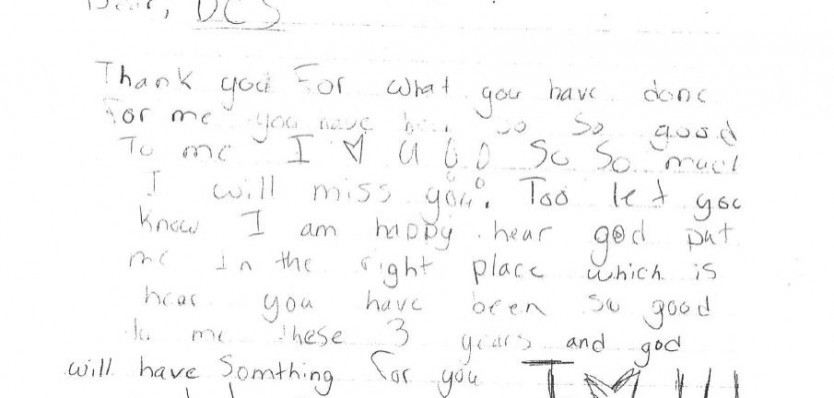 Dear, DCS
Thank you For what you have done
For me you have been so So good
To me I ♥ U So So much
I will miss you. Too let you
know I am happy hear god put
me in the right place which is
hear you have been so good
to me these 3 years and god
will have Somthing for you I ♥ U